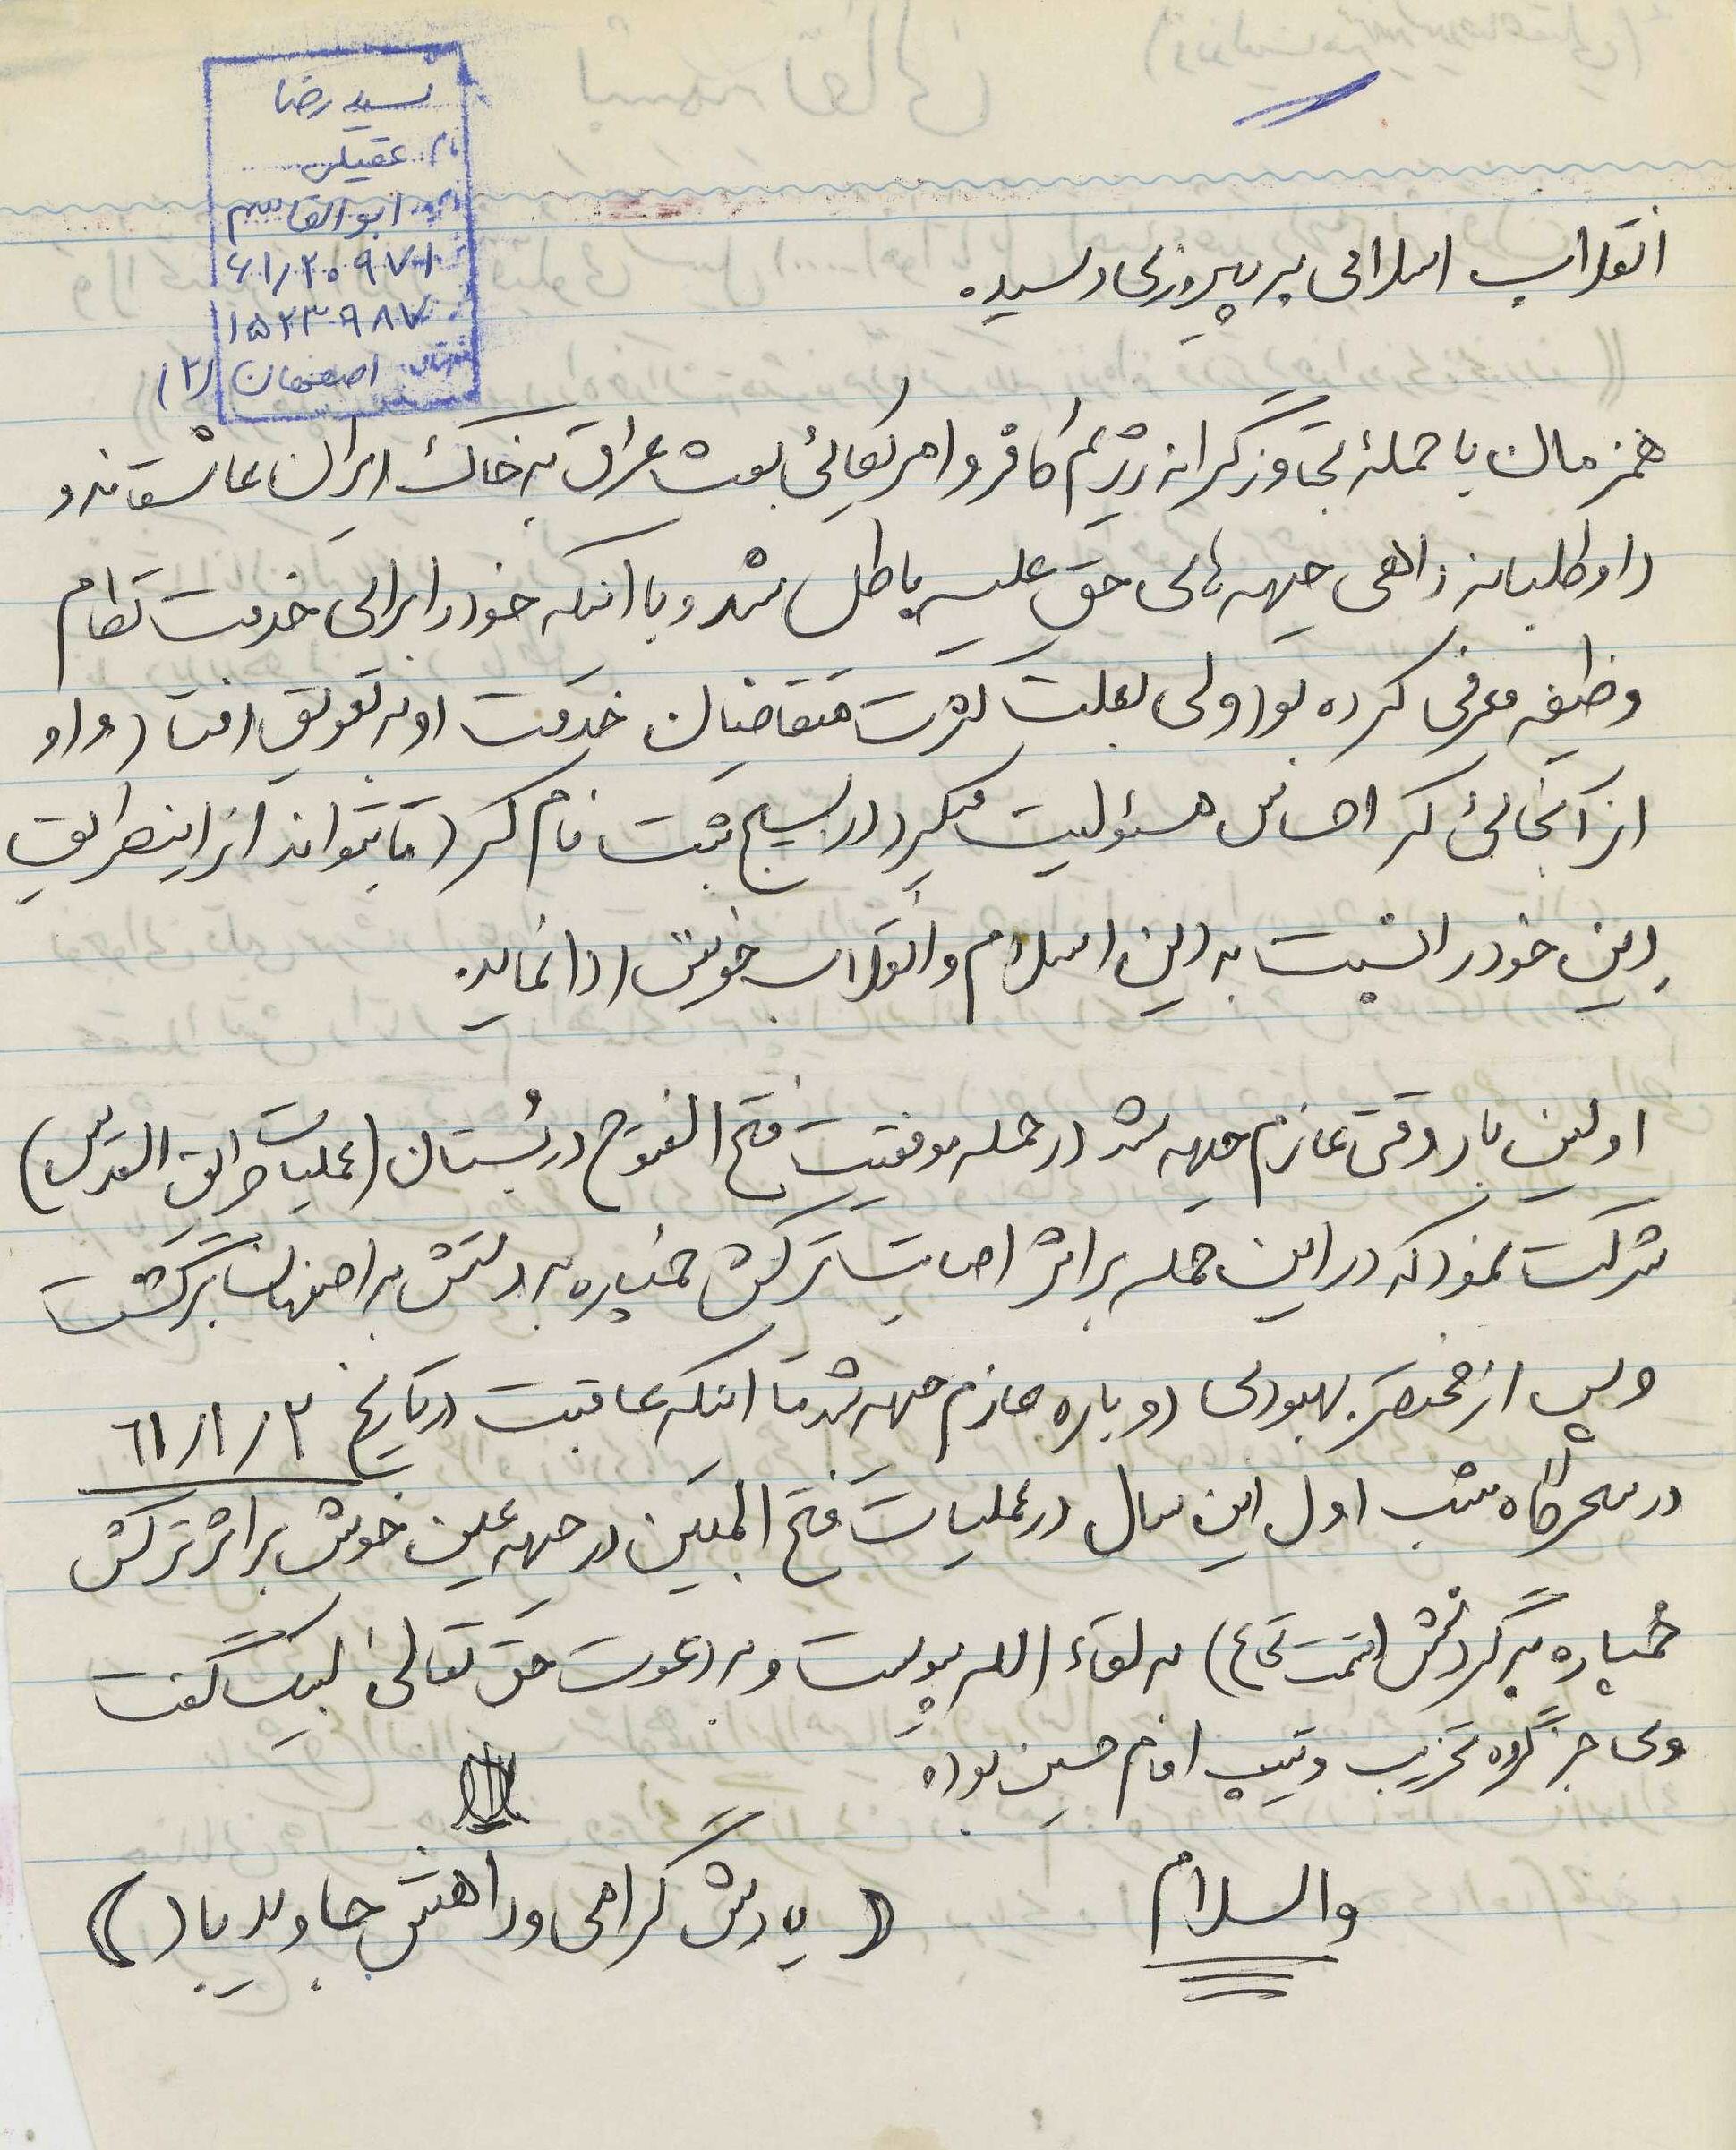 سید رضا
نام: عقیلی
ابوالقاسم
۶۱/۲۰۹۷۱
۱۵۲۳۹۸۷
اصفهان (۲)
انقلاب اسلامی به پیروزی رسید.
همزمان با حملهٔ تجاوزگرانه رژیم کافر و امریکائی بعث عراق به خاک ایران عاشقانه و
داوطلبانه راهی جبهه های حق علیه باطل شد و با انکه خود را برای خدمت نظام
وظیفه معرفی کرده بود ولی بعلت کثرت متقاضیان خدمت او به تعویق افتاد و او
از آنجائی که احساس مسئولیت میکرد در بسیج ثبت نام کرد تا بتواند از اینطریق
دین خود را نسبت به دین اسلام و انقلاب خویش ادا نماید.
اولین بار وقتی عازم جبهه شد در حمله موفقیت فتح الفتوح در بُستان (عملیات طریق القدس)
شرکت نمود که در این حمله بر اثر اصابت ترکش خمپاره به دستش به اصفهان برگشت
و پس از مختصر بهبودی دوباره عازم جبهه شد تا اینکه عاقبت در تاریخ ۶۱/۱/۲
در سحرگاه شب اول این سال در عملیات فتح المبین در جبهه عین خوش بر اثر ترکش
خمپاره به گردنش به لقاء الله پیوست و به دعوت حق تعالیٰ لبیک گفت
وی جزء گروه تخریب و تیپ امام حسین بوده
والسلام
(( یادش گرامی و راهش جاوید باد ))